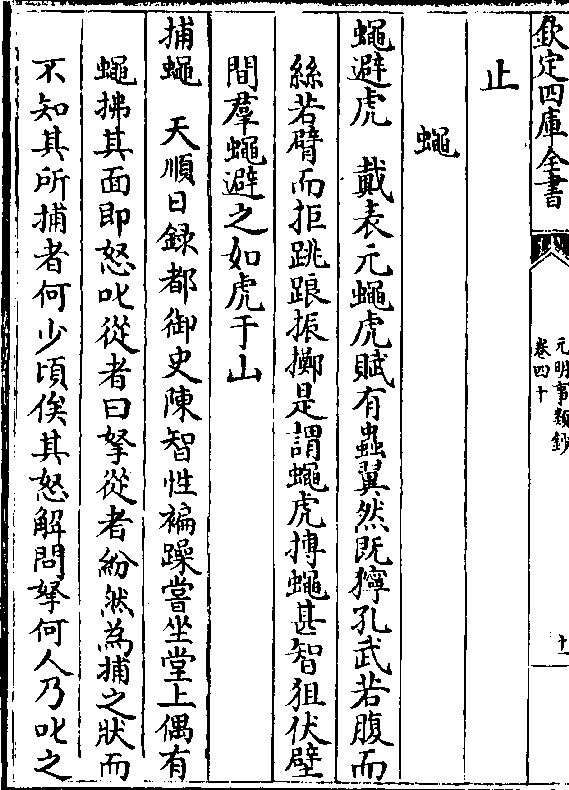 欽定四庫全書
元明事類鈔
卷四十
十一
止
蠅
蠅避虎　戴表元蠅虎賦有蟲翼然既獰孔武若腹而
絲若臂而拒跳踉振擲是謂蠅虎搏蠅甚智狙伏壁
間羣蠅避之如虎于山
捕蠅　天順日録都御史陳智性褊躁嘗坐堂上偶有
蠅拂其面即怒叱從者曰拏從者紛然為捕之狀而
不知其所捕者何少頃俟其怒解問拏何人乃叱之